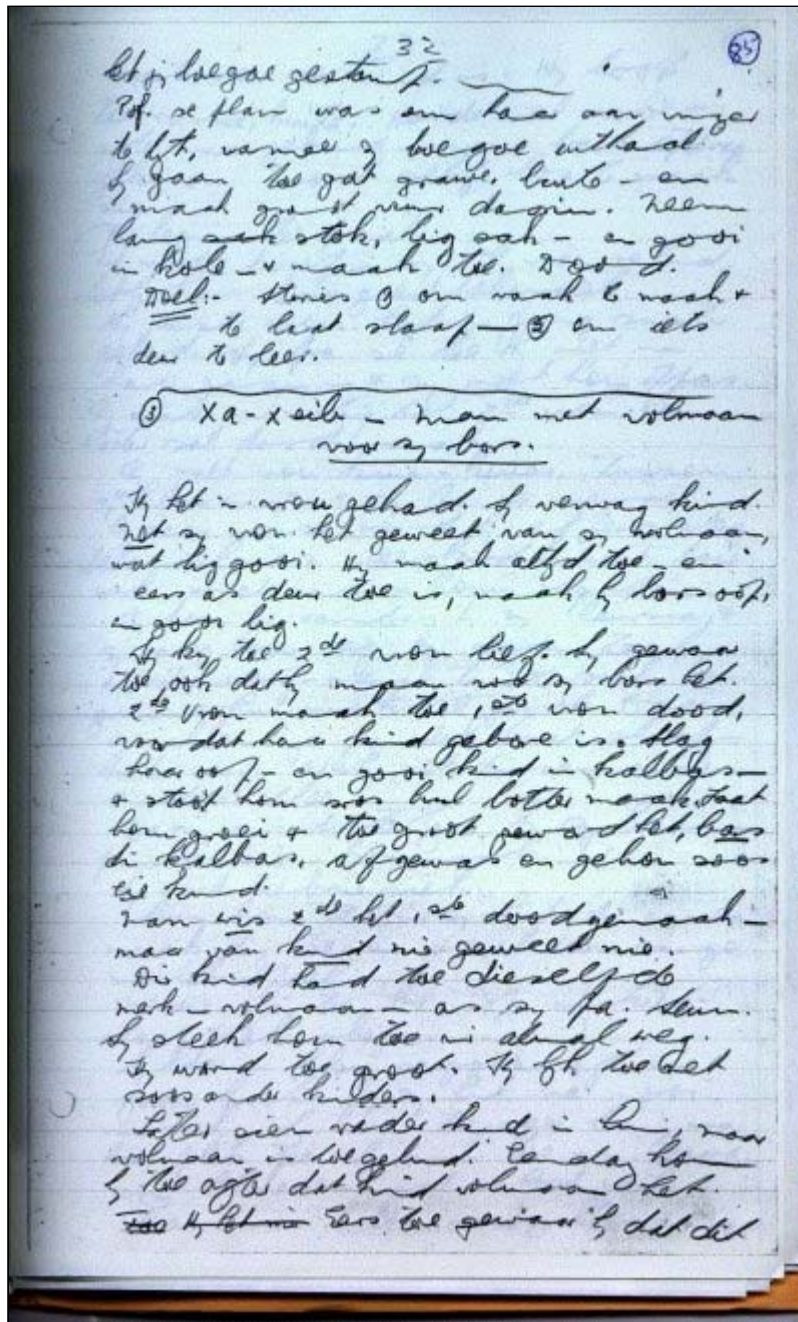 32
85
het jy boegoe gestamp.
Pof. se plan was om haar aan vinger
te byt, wanneer sy boegoe uithaal
Hy gaan toe gat grawe, buite - en
maak groot vuur daarin. Neem
lang sak stok, lig sak - en gooi
in kole - + maak toe. Dood.
Doel:- stories ① om vaak te maak +
te laat slaap - ② om iets
deur te leer.
③ Xa-Xeib - Man met volmaan
voor sy bors.
Hy het 'n vrou gehad. Sy verwag kind.
Net sy vrou het geweet van sy volmaan,
wat lig gooi. Hy maak altyd toe - en
eers as deur toe is, maak hy bors oop,
en gooi lig.
Hy kry toe 2de vrou lief. Sy gewaar
toe ook dat hy maan voor sy bors het.
2de vrou maak toe 1ste vrou dood,
voordat haar kind gebore is. Slag
haar oop - en gooi kind in kalbas -
+ stoot hom soos hul botter maak. Laat
hom groei + toe groot geword het, bars
die kalbas, afgewas en gehou soos
eie kind.
Man wis 2de het 1ste doodgemaak -
maar van kind nie geweet nie.
Die kind had toe dieselfde
merk - volmaan - as sy pa. Seun.
Sy steek hom toe nie almal weg.
Hy word toe groot. Hy lyk toe net
soos ander kinders.
Later sien vader kind in huis, maar
volmaan is toegebind. Eendag kom
hy toe agter dat kind volmaan het.
Eers toe gewaar hy dat dit